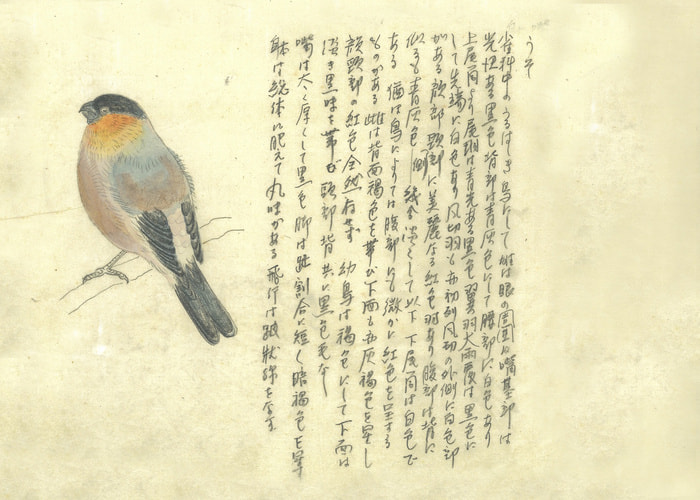 うそ
雀科中のうるはしき鳥にして雄は眼の周囲、嘴基部は
光沢ある黒色背部は青灰色にして腰部に白色あり
上尾筒より尾羽は青光ある黒色翼羽大雨覆は黒色に
して先端に白色あり風切羽も亦初列風切の外側に白色部
がある顔部頸部に美麗なる紅色羽あり腹部は背に
似るも青灰色 側 として以下下尾筒は白色で
ある 雄は鳥によりては腹部にも微かに紅色を呈する
ものがある 雌は背面褐色を帯び下面も亦灰褐色を呈し
顔頸部の紅色全然存せず 幼鳥は褐色にして下面は
淡き黒味を帯び頭部背共に黒色毛なし
嘴は太く厚くして黒色 脚は 割合に短く暗褐色を呈す
躰は総体に肥えて丸味がある 飛行は波状線をなす